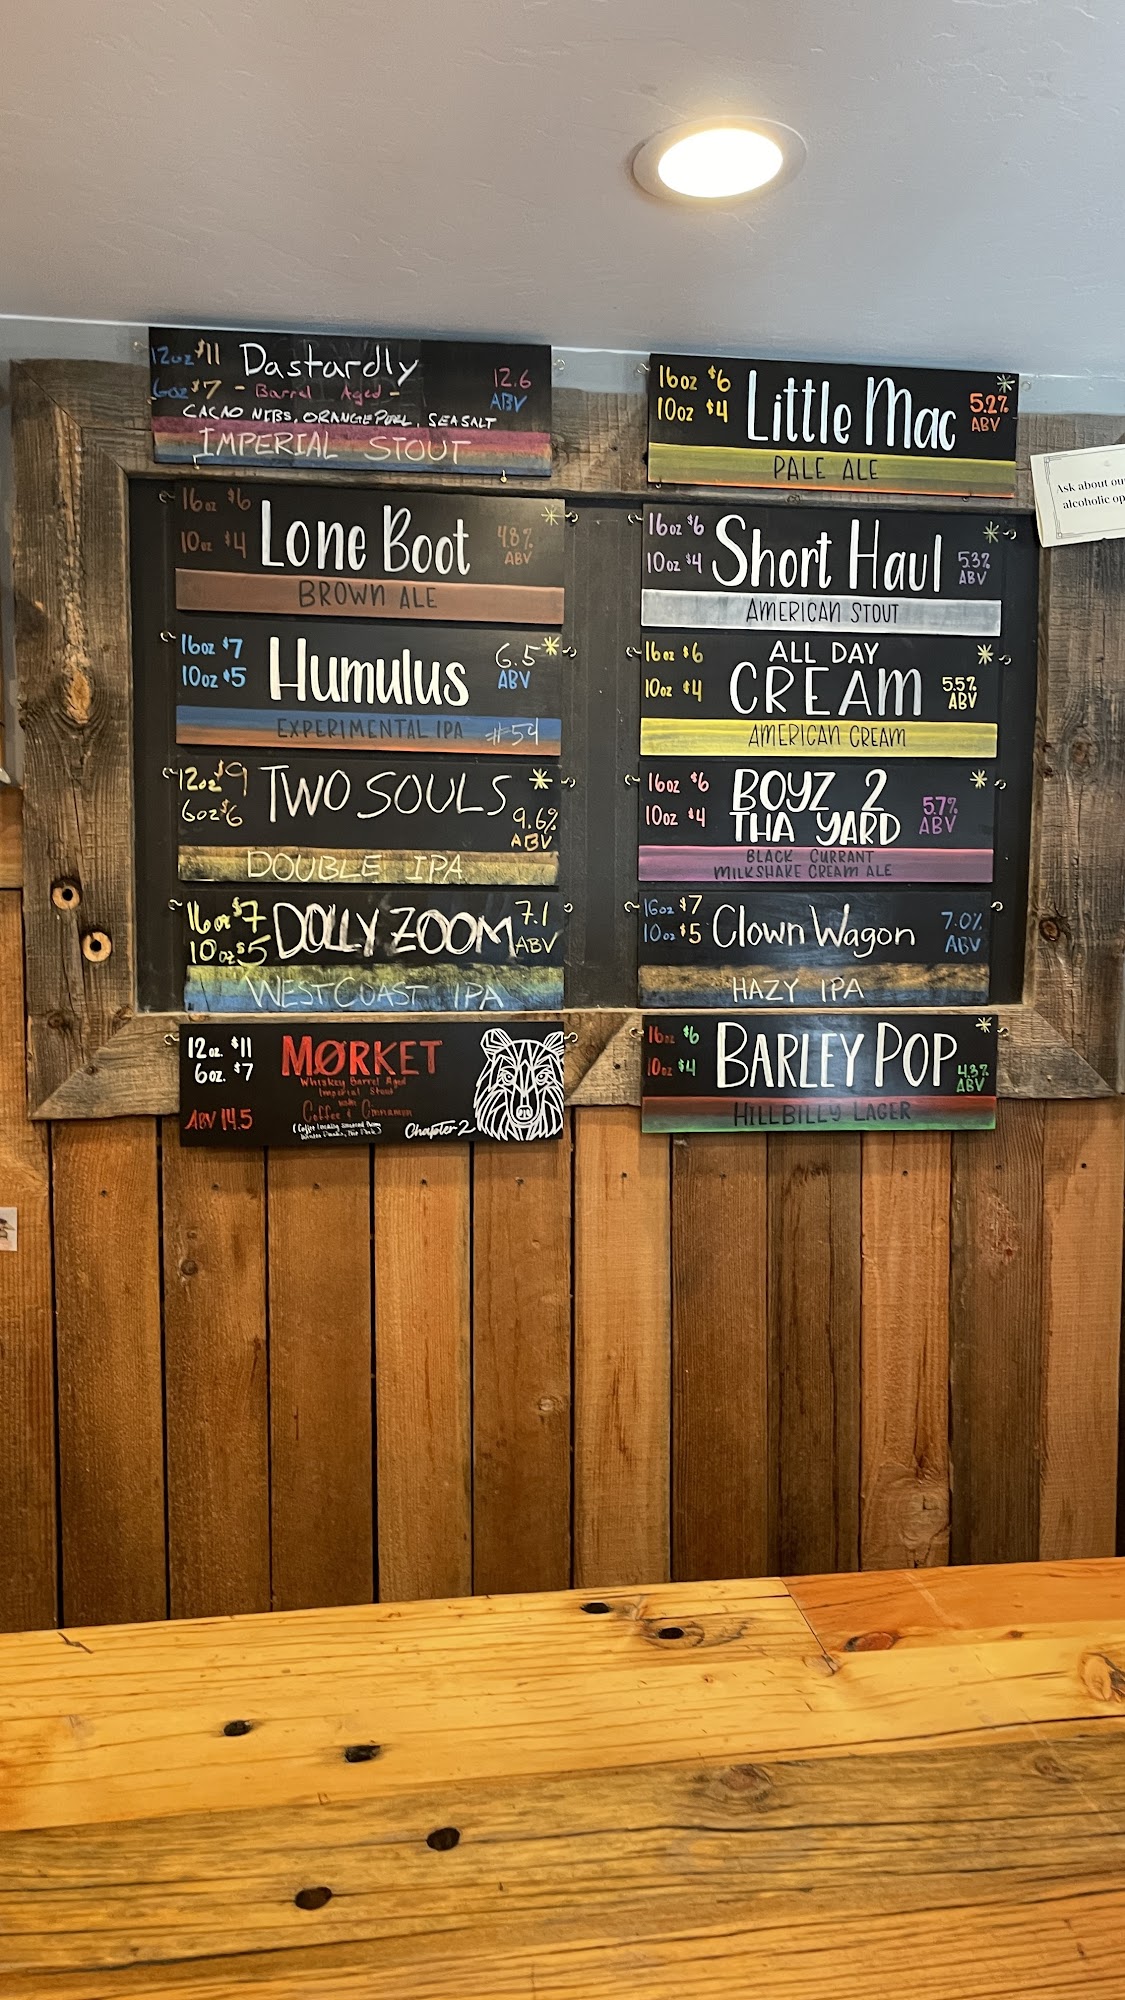 12oz $11 Dastardly
6oz $7 - Barrel Aged - 12.6 ABV
CACAO NIBS, ORANGE PEEL, SEA SALT
IMPERIAL STOUT
16oz $6 Lone Boot
10oz $4 4.8% ABV
BROWN ALE
16oz $7 Humulus 6.5
10oz $5 ABV
EXPERIMENTAL IPA #54
12oz $9 TWO SOULS
6oz $6 9.6% ABV
DOUBLE IPA
16oz $7 DOLLY ZOOM 7.1
10oz $5 ABV
WEST COAST IPA
12oz. $11 MØRKET
6oz. $7 Whiskey Barrel Aged
Imperial Stout
with
ABV 14.5 Coffee & Cinnamon
Chapter 2
16oz $6 Little Mac 5.2%
10oz $4 ABV
PALE ALE
Ask about ou
alcoholic op
16oz $6 Short Haul
10oz $4 5.3% ABV
AMERICAN STOUT
16oz $6 ALL DAY
10oz $4 CREAM 5.5% ABV
AMERICAN CREAM
16oz $6 BOYZ 2
10oz $4 THA YARD 5.7% ABV
BLACK CURRANT
MILKSHAKE CREAM ALE
16oz $7 Clown Wagon 7.0%
10oz $5 ABV
HAZY IPA
16oz $6 BARLEY POP
10oz $4 4.3% ABV
HILLBILLY LAGER